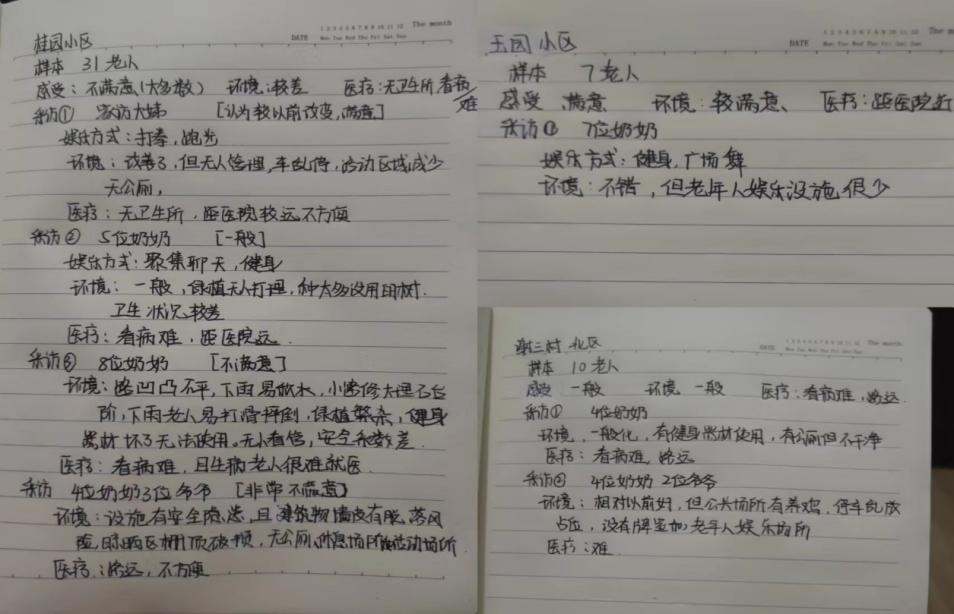 桂园小区
DATE
1 2 3 4 5 6 7 8 9 10 11 12 The month
Mon Tue Wed Thu Fri Sat Sun
样本 31老人
感受：不满意(大多数) 环境：较差 医疗：无卫生所，看病难
采访① 家访大姨 [认为较以前改变，满意]
娱乐方式：打拳，跑步
环境：改善了，但无人管理，车乱停，活动区域减少
无公厕，
医疗：无卫生所，距医院较远不方便
采访② 5位奶奶 [一般]
娱乐方式：聚集聊天，健身
环境：一般，绿植无人打理，种大多没用的树．
卫生状况较差
医疗：看病难，距医院远．
采访③ 8位奶奶 [不满意]
环境：路凹凸不平，下雨易积水，小路修大理石台
阶，下雨老人易打滑摔倒，绿植繁杂，健身
器材坏了无法使用。无人看管，安全系数差．
医疗：看病难，且生病老人很难就医．
采访 4位奶奶3位爷爷 [非常不满意]
环境：设施有安全隐患，且建筑物墙皮有脱落风
险，棚顶破损，无公厕
医疗：路远，不方便
玉园小区
DATE
1 2 3 4 5 6 7 8 9 10 11 12 The m
Mon Tue Wed Thu Fri Sat Sun
样本 7老人
感受 满意 环境：较满意、 医疗：距医院近
采访① 7位奶奶
娱乐方式：健身，广场舞
环境：不错，但老年人娱乐设施很少
谢三村 北区
DATE
1 2 3 4 5 6 7 8 9 10 11 12 The month
Mon Tue Wed Thu Fri Sat Sun
样本 10老人
感受 一般 环境 一般 医疗：看病难，路远．
采访① 4位奶奶
环境，一般化，有健身器材使用，有公厕但不干净
医疗：看病难，路远
采访② 4位奶奶 2位爷爷
环境：相对以前好，但公共场所有养鸡，停车乱成
占位，没有牌室加老年人娱乐场所
医疗：难．